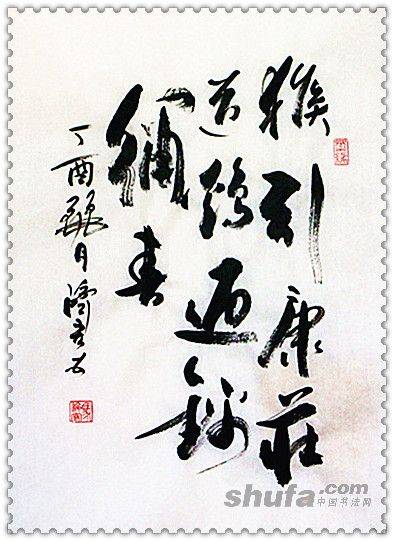 猴引康莊
道鸡迎錦
繡春
丁酉月
shufa.com
中国书法网